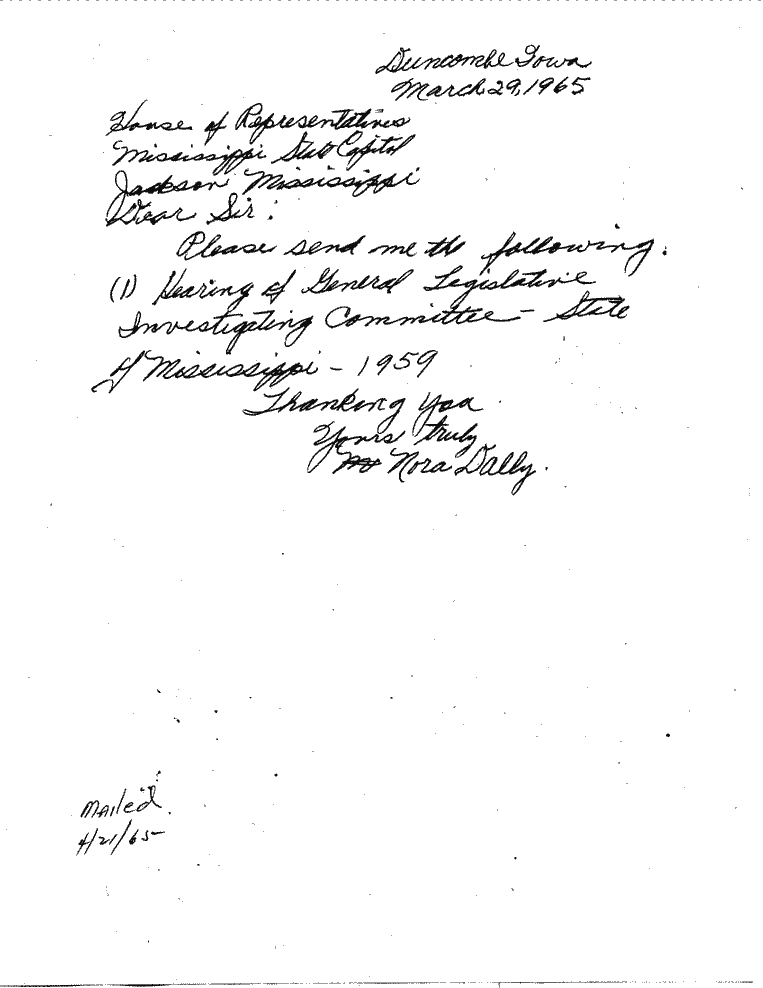 Duncombe Iowa
March 29, 1965
House of Representatives
Mississippi State Capitol
Jackson Mississippi
Dear Sir:
Please send me the following:
(1) Hearing of General Legislative
Investigating Committee - State
of Mississippi - 1959
Thanking you
Yours truly
Nora Dally.
Mailed.
4/21/65